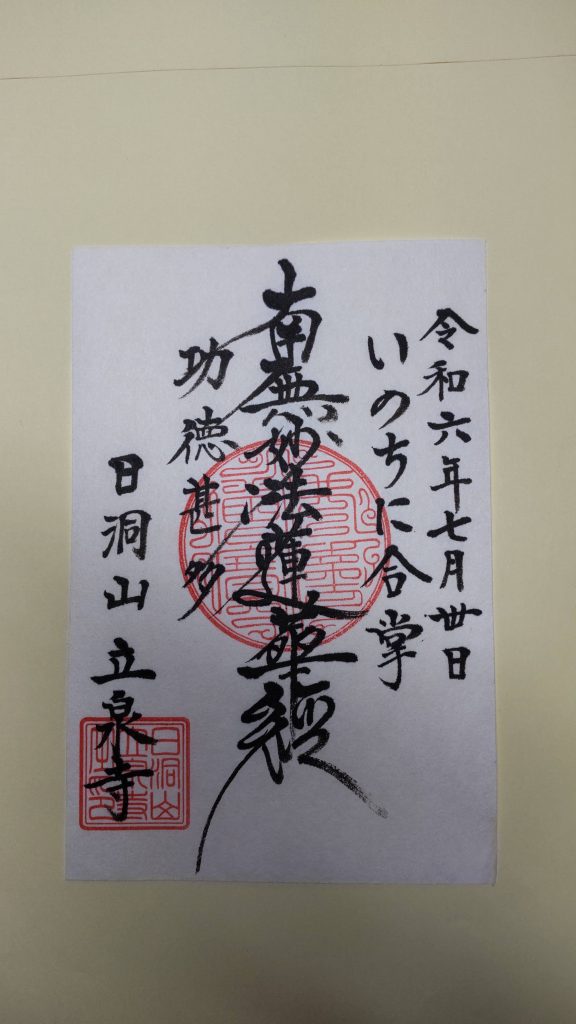 令和六年七月丗日
いのちに合掌
南無妙法蓮華経
功徳甚多
日洞山 立泉寺